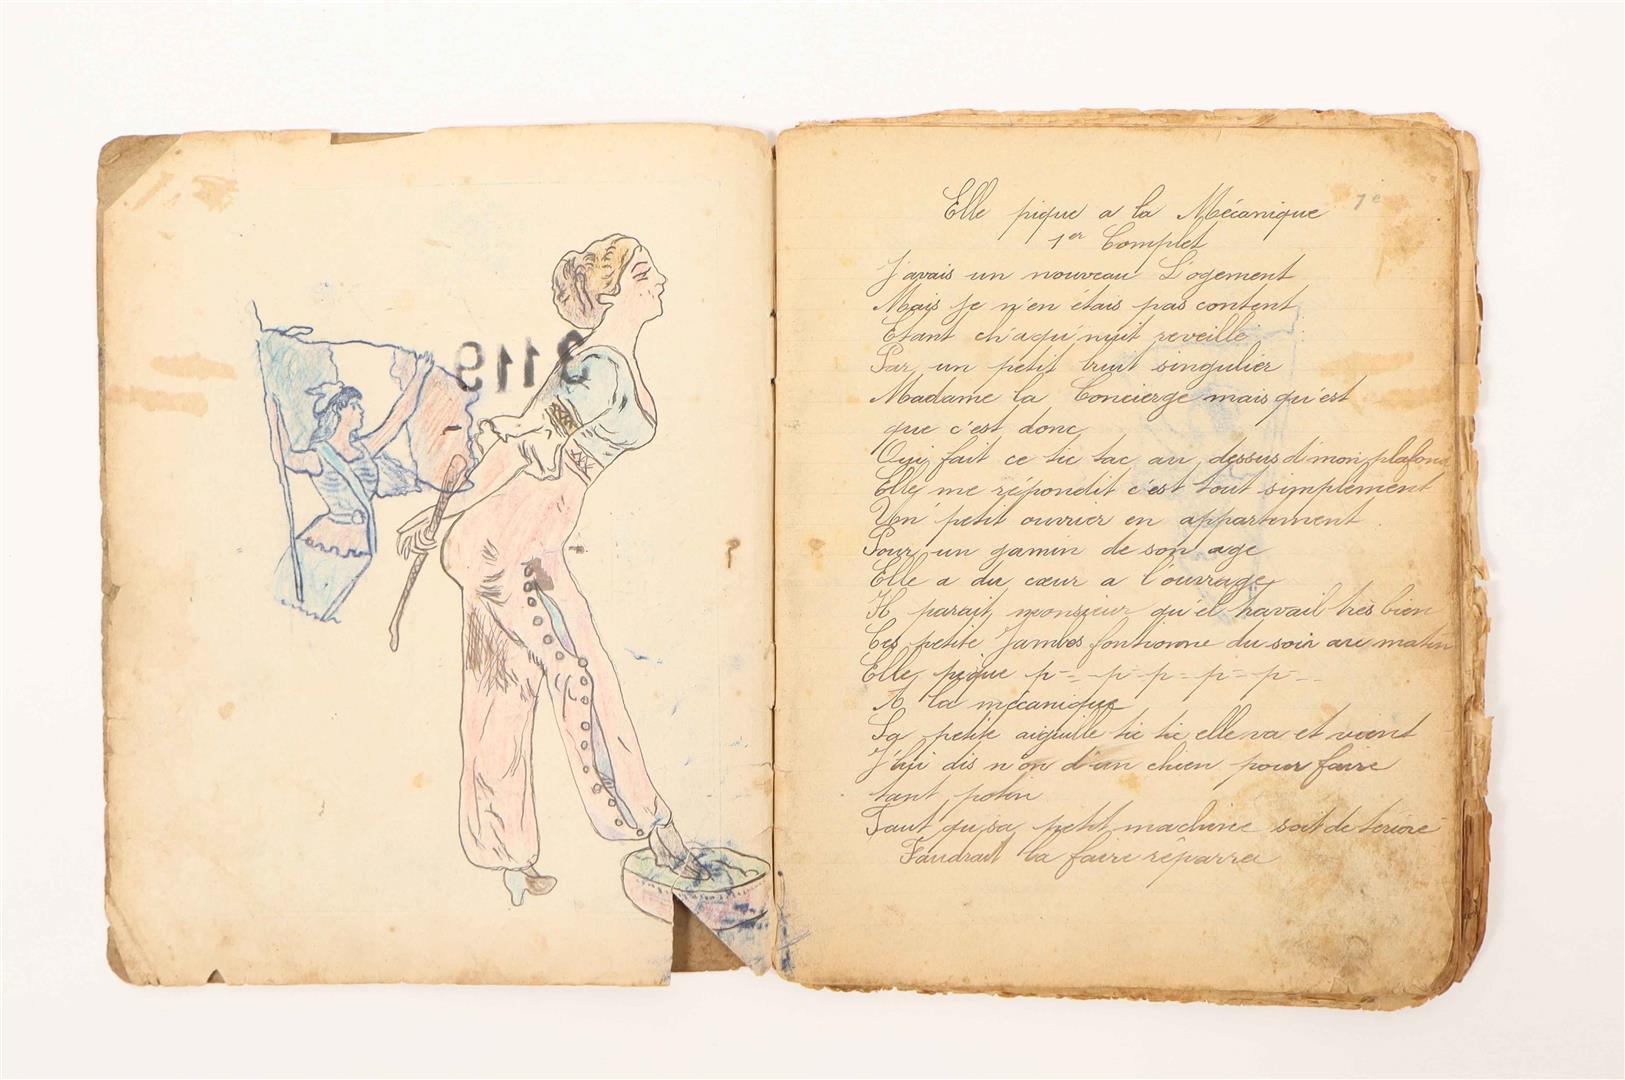 3119
7e
Elle pique a la Mécanique
1er Complet
J'avais un nouveau Logement
Mais je n'en étais pas content
Etant chaqu'nuit reveille
Par un petit bruit singulier
Madame la Concierge mais qu'est
que c'est donc
Qui fait ce tic tac au dessus d'mon plafond
Elle me répondit c'est tout simplement
Un petit ouvrier en appartement
Pour un gamin de son age
Elle a du cœur a l'ouvrage
Il parait monsieur qu'el travail très bien
Ces petite jambes fontionne du soir au matin
Elle pique p- p- p- p- p-
A la mécanique
Sa petite aiguille tic tic elle va et vient
J'lui dis n'on d'un chien pour faire
tant potin
Faut qu'sa petit machine soit deteriore
Faudrait la faire réparrer